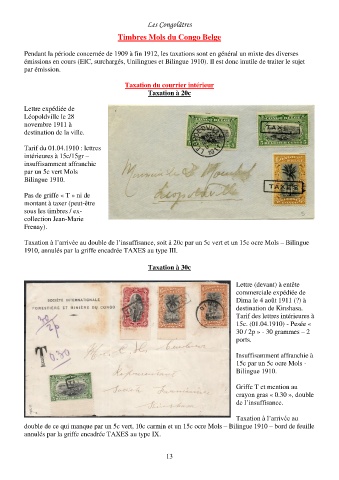 Les Congolâtres
Timbres Mols du Congo Belge
Pendant la période concernée de 1909 à fin 1912, les taxations sont en général un mixte des diverses
émissions en cours (EIC, surchargés, Unilingues et Bilingue 1910). Il est donc inutile de traiter le sujet
par émission.
Taxation du courrier intérieur
Taxation à 20c
Lettre expédiée de
Léopoldville le 28
novembre 1911 à
destination de la ville.
Tarif du 01.04.1910 : lettres
intérieures à 15c/15gr –
insuffisamment affranchie
par un 5c vert Mols
Bilingue 1910.
Pas de griffe « T » ni de
montant à taxer (peut-être
sous les timbres / ex-
collection Jean-Marie
Frenay).
TAXES
TAXES
Taxation à l'arrivée au double de l'insuffisance, soit à 20c par un 5c vert et un 15c ocre Mols – Bilingue
1910, annulés par la griffe encadrée TAXES au type III.
Taxation à 30c
SOCIÉTÉ INTERNATIONALE
FORESTIÈRE ET MINIÈRE DU CONGO
30
2p
T 0.30
Lettre (devant) à entête
commerciale expédiée de
Dima le 4 août 1911 (?) à
destination de Kinshasa.
Tarif des lettres intérieures à
15c. (01.04.1910) - Pesée «
30 / 2p » - 30 grammes – 2
ports.
Insuffisamment affranchie à
15c par un 5c ocre Mols -
Bilingue 1910.
Griffe T et mention au
crayon gras « 0.30 », double
de l'insuffisance.
Taxation à l'arrivée au
double de ce qui manque par un 5c vert, 10c carmin et un 15c ocre Mols – Bilingue 1910 – bord de feuille
annulés par la griffe encadrée TAXES au type IX.
13